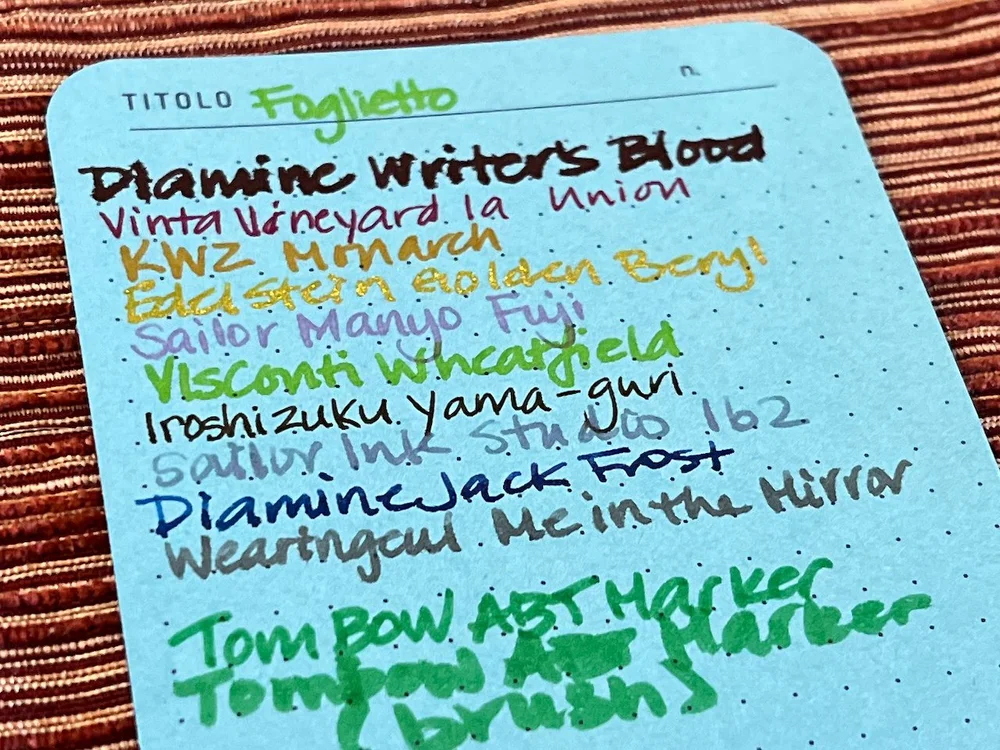 TITOLO Foglietto n.
Diamine Writer's Blood
Vinta Vineyard la Union
KWZ Monarch
Edelstein Golden Beryl
Sailor Manyo Fuji
Visconti Wheatfield
Iroshizuku Yama-guri
Sailor Ink Studio 162
Diamine Jack Frost
Wearingeul Me in the Mirror
Tom Bow ABT Marker
Tombow ABT Marker
(brush)